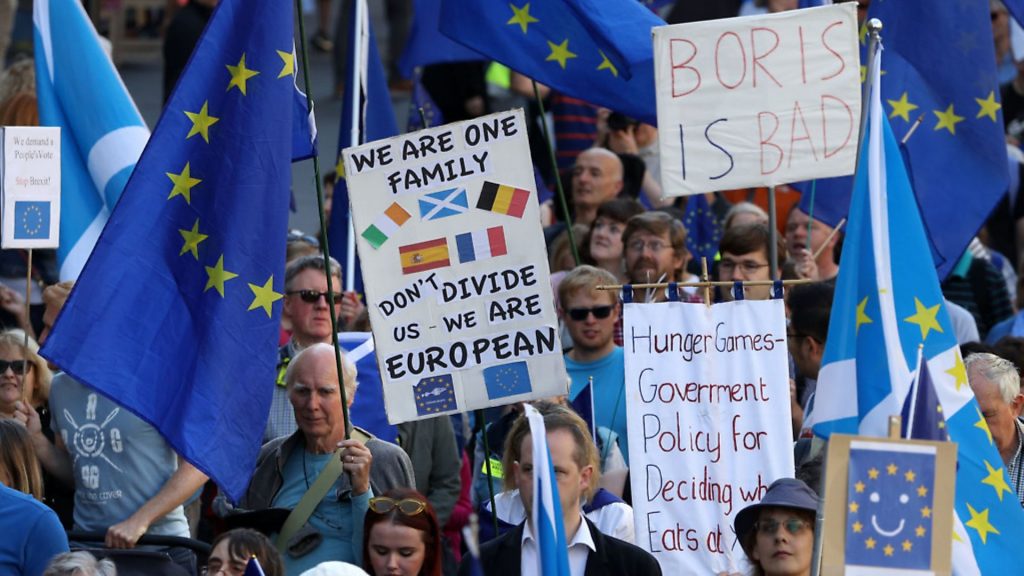 We demand a
People'sVote
Stop Brexit!
WE ARE ONE
FAMILY
DON'T DIVIDE
US - WE ARE
EUROPEAN
BORIS
IS BAD
Hunger Games-
Government
Policy for
Deciding
Eats at